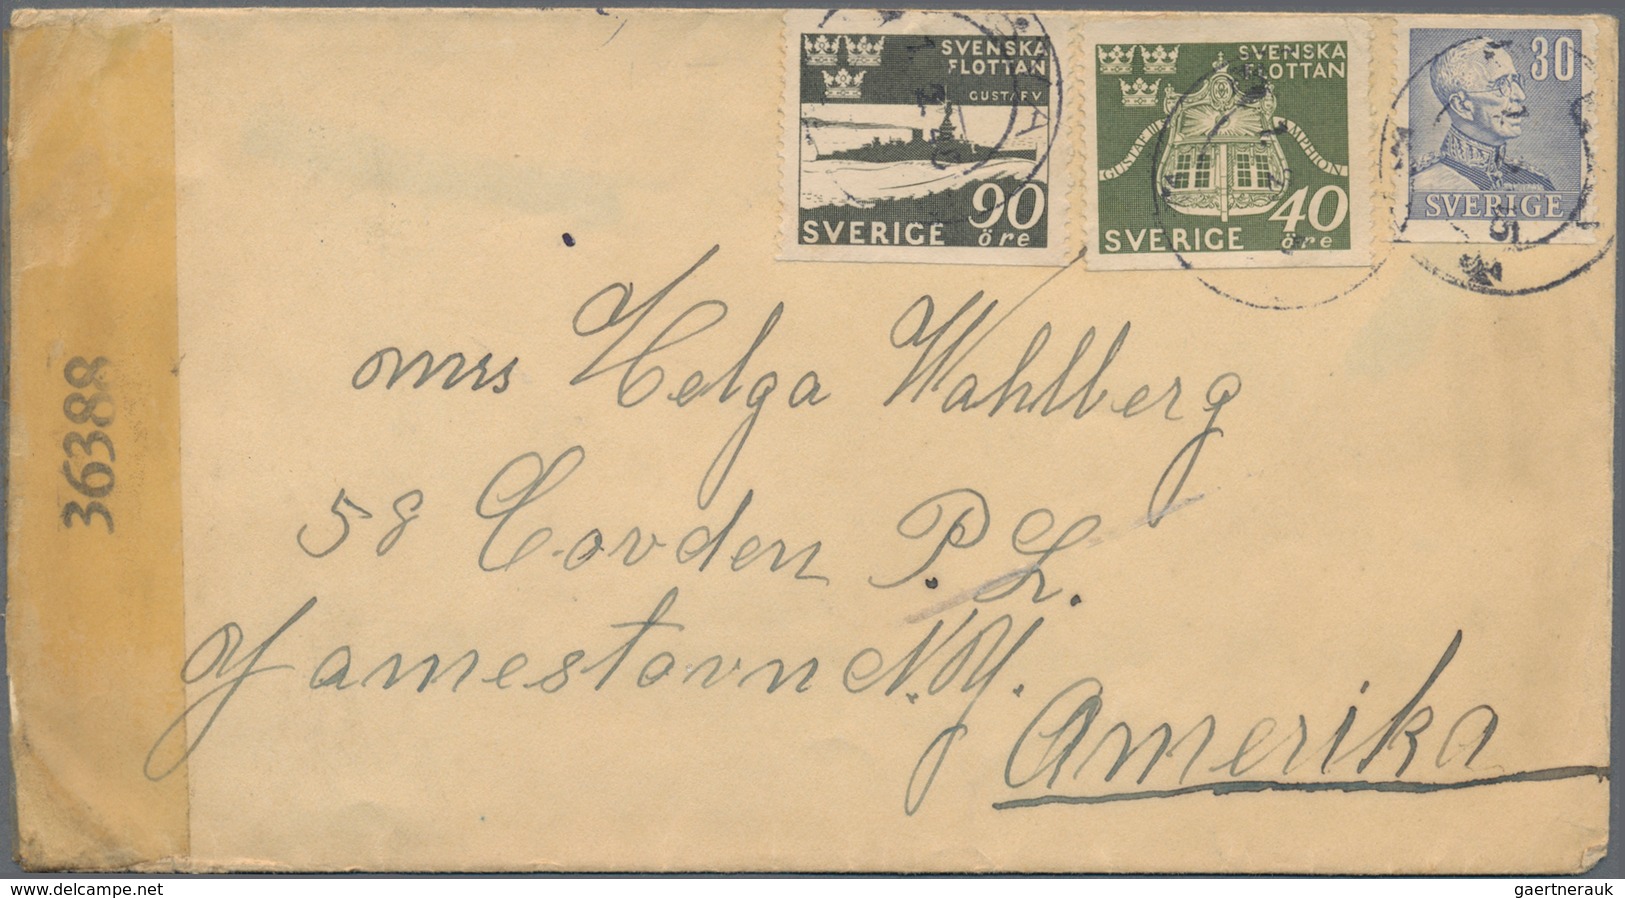 SVENSKA
FLOTTAN
GUSTAF V
90
öre
SVERIGE
SVENSKA
FLOTTAN
GUSTAF III
AMPHION
40
öre
SVERIGE
30
SVERIGE
36388
mrs Helga Wahlberg
58 Covden P.L.
Jamestovn N.Y.
Amerika
www.delcampe.net
gaertnerauk